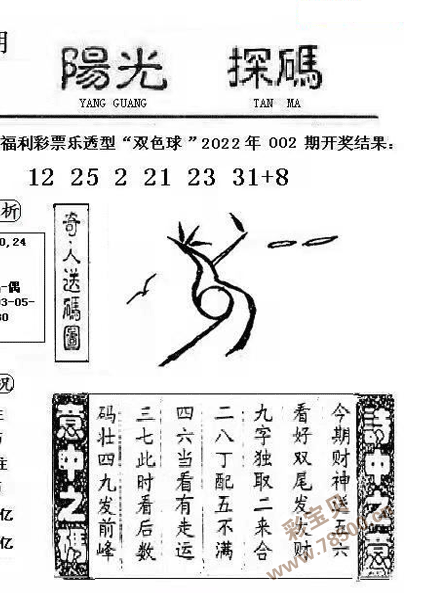 期
陽光 探碼
YANG GUANG TAN MA
福利彩票乐透型“双色球”2022年002期开奖结果：
12 25 2 21 23 31+8
析
0,24
-偶
03-05-
30
奇人送碼圖
况
注
注
亿
亿
詩中之意
今期财神送五六
看好双尾发大财
九字独取二来合
二八丁配五不满
四六当看有走运
三七此时看后数
码壮四九发前峰
意中之碼
彩宝网
www.78500.cn